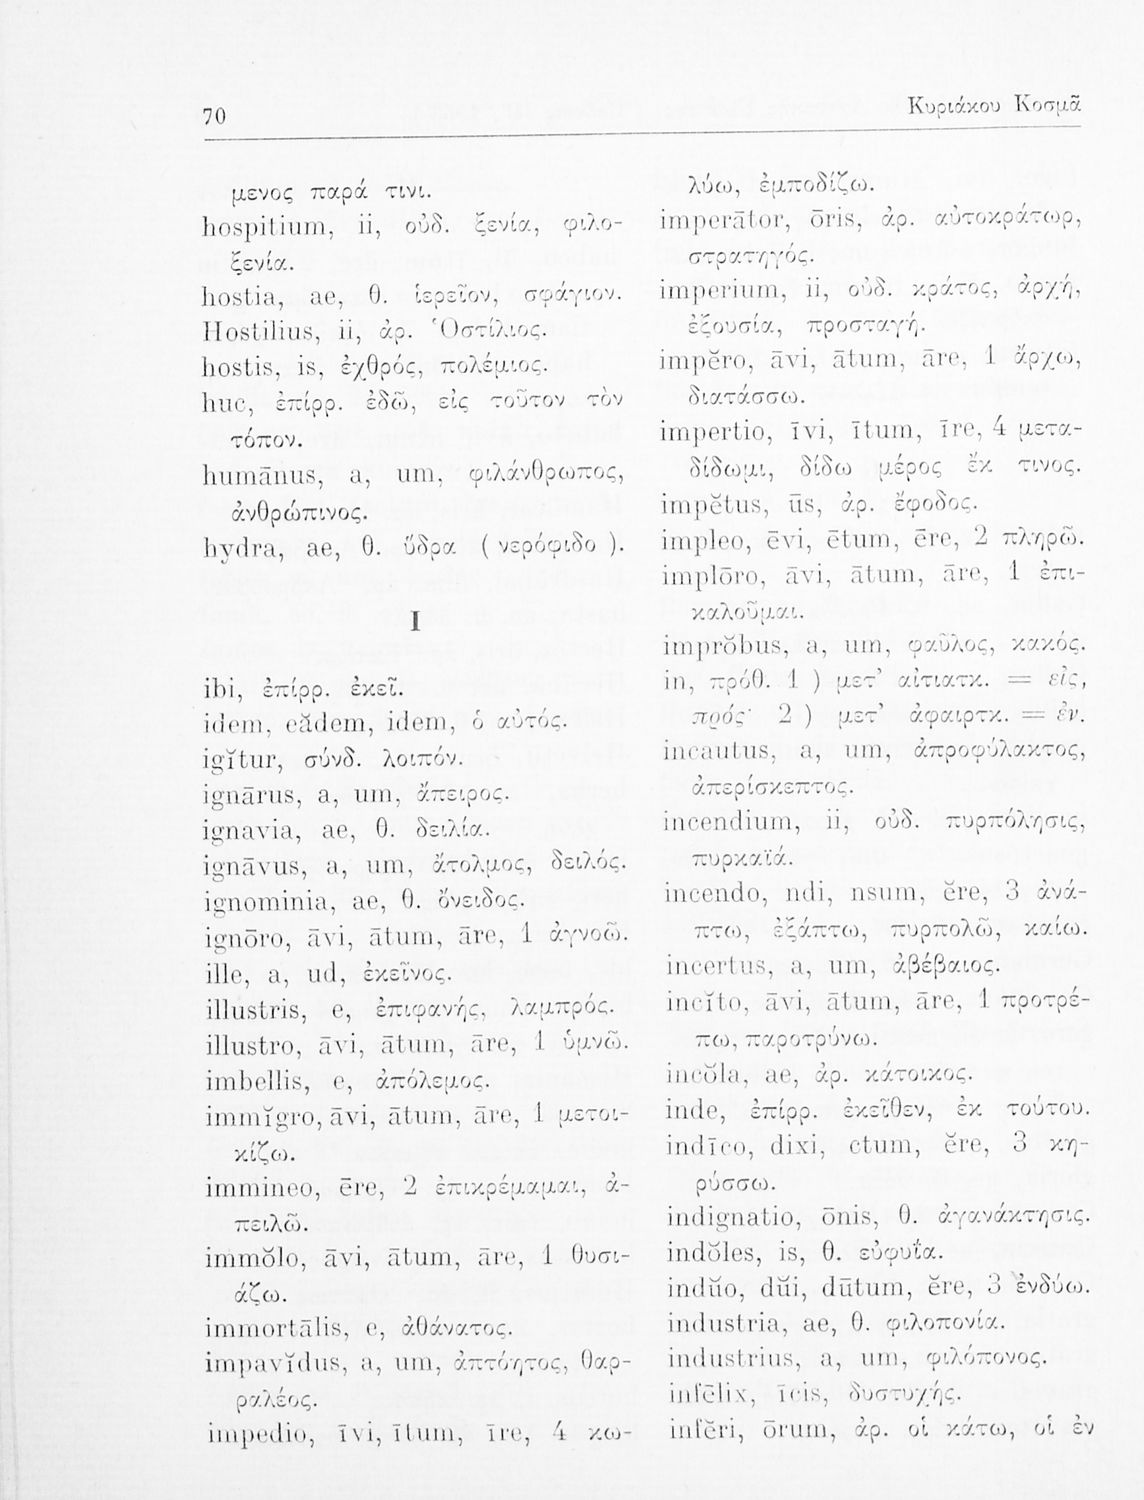 70
Κυριάκου Κοσμᾶ
μενος παρά τινι.
hospitium, ii, οὐδ. ξενία, φιλο-
ξενία.
hostia, ae, θ. ἱερεῖον, σφάγιον.
Hostilius, ii, ἀρ. Ὁστίλιος.
hostis, is, ἐχθρός, πολέμιος.
huc, ἐπίρρ. ἐδῶ, εἰς τοῦτον τὸν
τόπον.
humānus, a, um, φιλάνθρωπος,
ἀνθρώπινος.
hydra, ae, θ. ὕδρα ( νερόφιδο ).
I
ibi, ἐπίρρ. ἐκεῖ.
idem, eădem, idem, ὁ αὐτός.
igĭtur, σύνδ. λοιπόν.
ignārus, a, um, ἄπειρος.
ignavia, ae, θ. δειλία.
ignāvus, a, um, ἄτολμος, δειλός.
ignominia, ae, θ. ὄνειδος.
ignōro, āvi, ātum, āre, 1 ἀγνοῶ.
ille, a, ud, ἐκεῖνος.
illustris, e, ἐπιφανής, λαμπρός.
illustro, āvi, ātum, āre, 1 ὑμνῶ.
imbellis, e, ἀπόλεμος.
immĭgro, āvi, ātum, āre, 1 μετοι-
κίζω.
immineo, ēre, 2 ἐπικρέμαμαι, ἀ-
πειλῶ.
immŏlo, āvi, ātum, āre, 1 θυσι-
άζω.
immortālis, e, ἀθάνατος.
impavĭdus, a, um, ἀπτόητος, θαρ-
ραλέος.
impedio, īvi, ītum, īre, 4 κω-
λύω, ἐμποδίζω.
imperātor, ōris, ἀρ. αὐτοκράτωρ,
στρατηγός.
imperium, ii, οὐδ. κράτος, ἀρχή,
ἐξουσία, προσταγή.
impĕro, āvi, ātum, āre, 1 ἄρχω,
διατάσσω.
impertio, īvi, ītum, īre, 4 μετα-
δίδωμι, δίδω μέρος ἔκ τινος.
impĕtus, ūs, ἀρ. ἔφοδος.
impleo, ēvi, ētum, ēre, 2 πληρῶ.
implōro, āvi, ātum, āre, 1 ἐπι-
καλοῦμαι.
imprŏbus, a, um, φαῦλος, κακός.
in, πρόθ. 1 ) μετ’ αἰτιατκ. = εἰς,
πρός· 2 ) μετ’ ἀφαιρτκ. = ἐν.
incautus, a, um, ἀπροφύλακτος,
ἀπερίσκεπτος.
incendium, ii, οὐδ. πυρπόλησις,
πυρκαϊά.
incendo, ndi, nsum, ĕre, 3 ἀνά-
πτω, ἐξάπτω, πυρπολῶ, καίω.
incertus, a, um, ἀβέβαιος.
incĭto, āvi, ātum, āre, 1 προτρέ-
πω, παροτρύνω.
incŏla, ae, ἀρ. κάτοικος.
inde, ἐπίρρ. ἐκεῖθεν, ἐκ τούτου.
indīco, dixi, ctum, ĕre, 3 κη-
ρύσσω.
indignatio, ōnis, θ. ἀγανάκτησις.
indŏles, is, θ. εὐφυΐα.
indŭo, dŭi, dūtum, ĕre, 3 ἐνδύω.
industria, ae, θ. φιλοπονία.
industrius, a, um, φιλόπονος.
infēlix, īcis, δυστυχής.
infĕri, ōrum, ἀρ. οἱ κάτω, οἱ ἐν